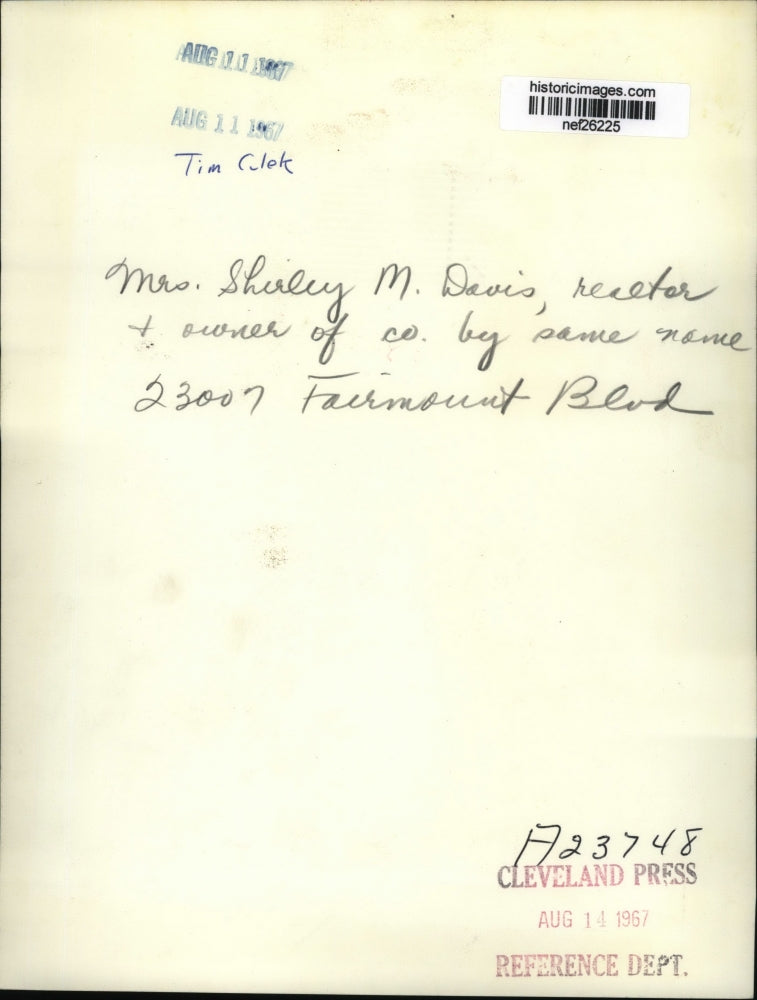 AUG 11 1967
historicimages.com
nef26225
AUG 11 1967
Tim Culek
Mrs. Shirley M. Davis, realtor
+ owner of co. by same name
23007 Fairmount Blvd
A23748
CLEVELAND PRESS
AUG 14 1967
REFERENCE DEPT.